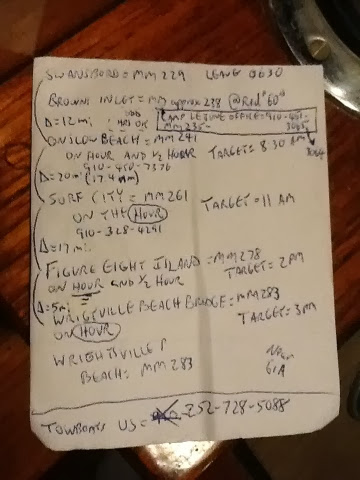 SWANSBORO = MM 229 LEAVE 0630
BROWNS INLET = MM approx 238 @Red "60"
Δ = 12 mi
CAMP LEJEUNE OFFICE = 910-451-
MM 235-
ONSLOW BEACH = MM 241
ON HOUR AND ½ HOUR TARGET = 8:30 AM
910-450-7376
Δ = 20 mi (17.4 nm)
SURF CITY = MM 261
ON THE HOUR TARGET = 11 AM
910-328-4291
Δ = 17 mi
FIGURE EIGHT ISLAND = MM 278
ON HOUR AND ½ HOUR TARGET = 2PM
Δ = 5 mi
WRIGTSVILLE BEACH BRIDGE = MM 283
ON HOUR TARGET = 3PM
WRIGHTSVILLE
BEACH: MM 283
TOWBOATS US = 252-728-5088